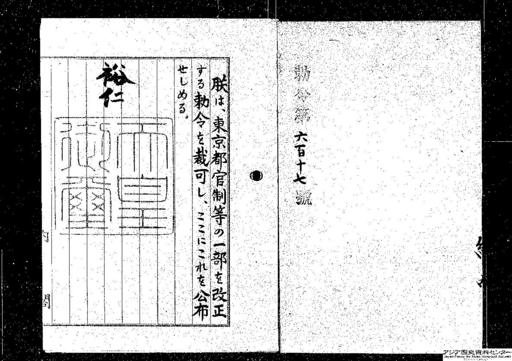 勅令第六百十七號
朕は、東京都官制等の一部を改正
する勅令を裁可し、ここにこれを公布
せしめる。
裕仁
天皇御璽
内閣
アジア歴史資料センター